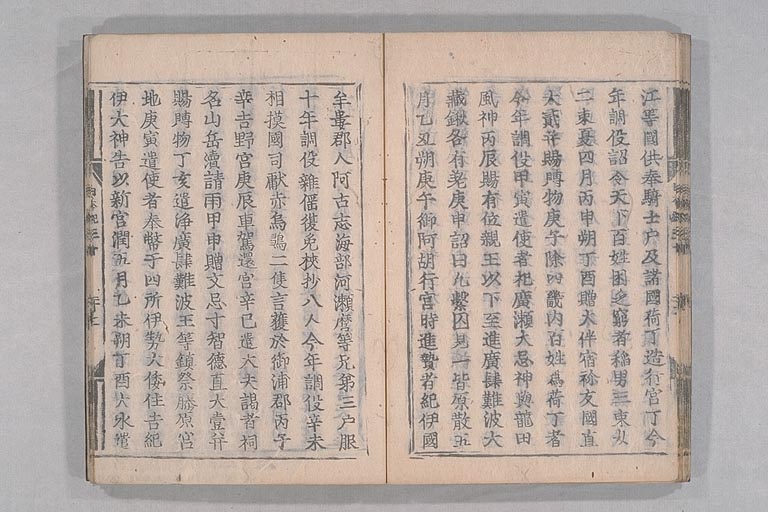 江等國供奉騎士户及諸國荷丁造行宮丁今
年調役詔令天下百姓困乏窮者稻男三束女
二束夏四月丙申朔丁酉贈大伴宿祢友國直
大貳并賜賻物庚子除四畿内百姓爲荷丁者
今年調役甲寅遣使者祀廣瀬大忌神與龍田
風神丙辰賜有位親王以下至進廣肆難波大
藏鍬各有差庚申詔曰凡繫囚見一皆原散五
月乙丑朔庚午御阿胡行宮時進贄者紀伊國
牟婁郡人阿古志海部河瀬麿等兄弟三户服
十年調役雜徭復免挾抄八人今年調役辛未
相摸國司獻赤烏鶵二隻言獲於御浦郡丙子
幸吉野宮庚辰車駕還宮辛巳遣大夫謁者祠
名山岳瀆請雨甲申贈文忌寸智德直大壹并
賜賻物丁亥遣浄廣肆難波王等鎮祭藤原宮
地庚寅遣使者奉幣于四所伊勢大倭住吉紀
伊大神告以新宮潤五月乙未朔丁酉大水遣